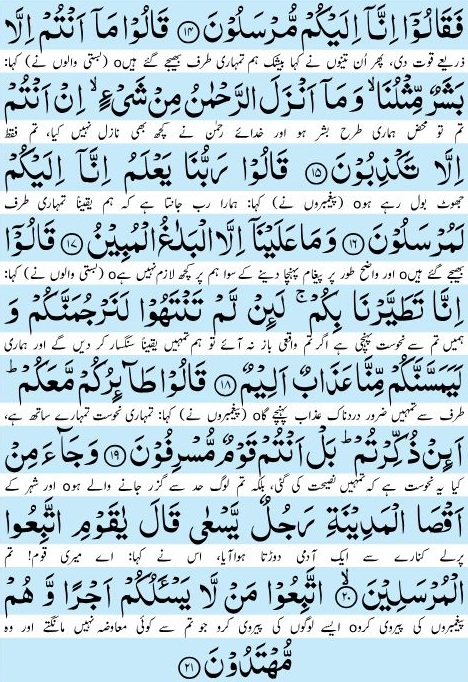 فَقَالُوْۤا اِنَّاۤ اِلَيْكُمْ مُّرْسَلُوْنَ ﴿۱۴﴾ قَالُوْا مَاۤ اَنْتُمْ اِلَّا
ذریعے قوت دی، پھر اُن تینوں نے کہا بیشک ہم تمہاری طرف بھیجے گئے ہیںo (بستی والوں نے) کہا:
بَشَرٌ مِّثْلُنَا ۙ وَمَاۤ اَنْزَلَ الرَّحْمٰنُ مِنْ شَيْءٍ ۙ اِنْ اَنْتُمْ
تم تو محض ہماری طرح بشر ہو اور خدائے رحمٰن نے کچھ بھی نازل نہیں کیا، تم فقط
اِلَّا تَكْذِبُوْنَ ﴿۱۵﴾ قَالُوْا رَبُّنَا يَعْلَمُ اِنَّاۤ اِلَيْكُمْ
جھوٹ بول رہے ہوo (پیغمبروں نے) کہا: ہمارا رب جانتا ہے کہ ہم یقیناً تمہاری طرف
لَمُرْسَلُوْنَ ﴿۱۶﴾ وَمَا عَلَيْنَاۤ اِلَّا الْبَلٰغُ الْمُبِيْنُ ﴿۱۷﴾ قَالُوْۤا
بھیجے گئے ہیںo اور واضح طور پر پیغام پہنچا دینے کے سوا ہم پر کچھ لازم نہیں ہےo (بستی والوں نے) کہا:
اِنَّا تَطَيَّرْنَا بِكُمْ ۚ لَئِنْ لَّمْ تَنْتَهُوْا لَنَرْجُمَنَّكُمْ وَ
ہمیں تم سے نحوست پہنچی ہے اگر تم واقعی باز نہ آئے تو ہم تمہیں یقیناً سنگسار کر دیں گے اور ہماری
لَيَمَسَّنَّكُمْ مِّنَّا عَذَابٌ اَلِيْمٌ ﴿۱۸﴾ قَالُوْا طَآئِرُكُمْ مَّعَكُمْ ؕ
طرف سے تمہیں ضرور دردناک عذاب پہنچے گاo (پیغمبروں نے) کہا: تمہاری نحوست تمہارے ساتھ ہے،
اَئِنْ ذُكِّرْتُمْ ؕ بَلْ اَنْتُمْ قَوْمٌ مُّسْرِفُوْنَ ﴿۱۹﴾ وَجَآءَ مِنْ
کیا یہ نحوست ہے کہ تمہیں نصیحت کی گئی، بلکہ تم لوگ حد سے گزر جانے والے ہوo اور شہر کے
اَقْصَا الْمَدِيْنَةِ رَجُلٌ يَّسْعٰى قَالَ يٰقَوْمِ اتَّبِعُوا
پرلے کنارے سے ایک آدمی دوڑتا ہوا آیا، اس نے کہا: اے میری قوم! تم
الْمُرْسَلِيْنَ ﴿۲۰﴾ ۙ اتَّبِعُوْا مَنْ لَّا يَسْـَٔلُكُمْ اَجْرًا وَّ هُمْ
پیغمبروں کی پیروی کروo ایسے لوگوں کی پیروی کرو جو تم سے کوئی معاوضہ نہیں مانگتے اور وہ
مُّهْتَدُوْنَ ﴿۲۱﴾